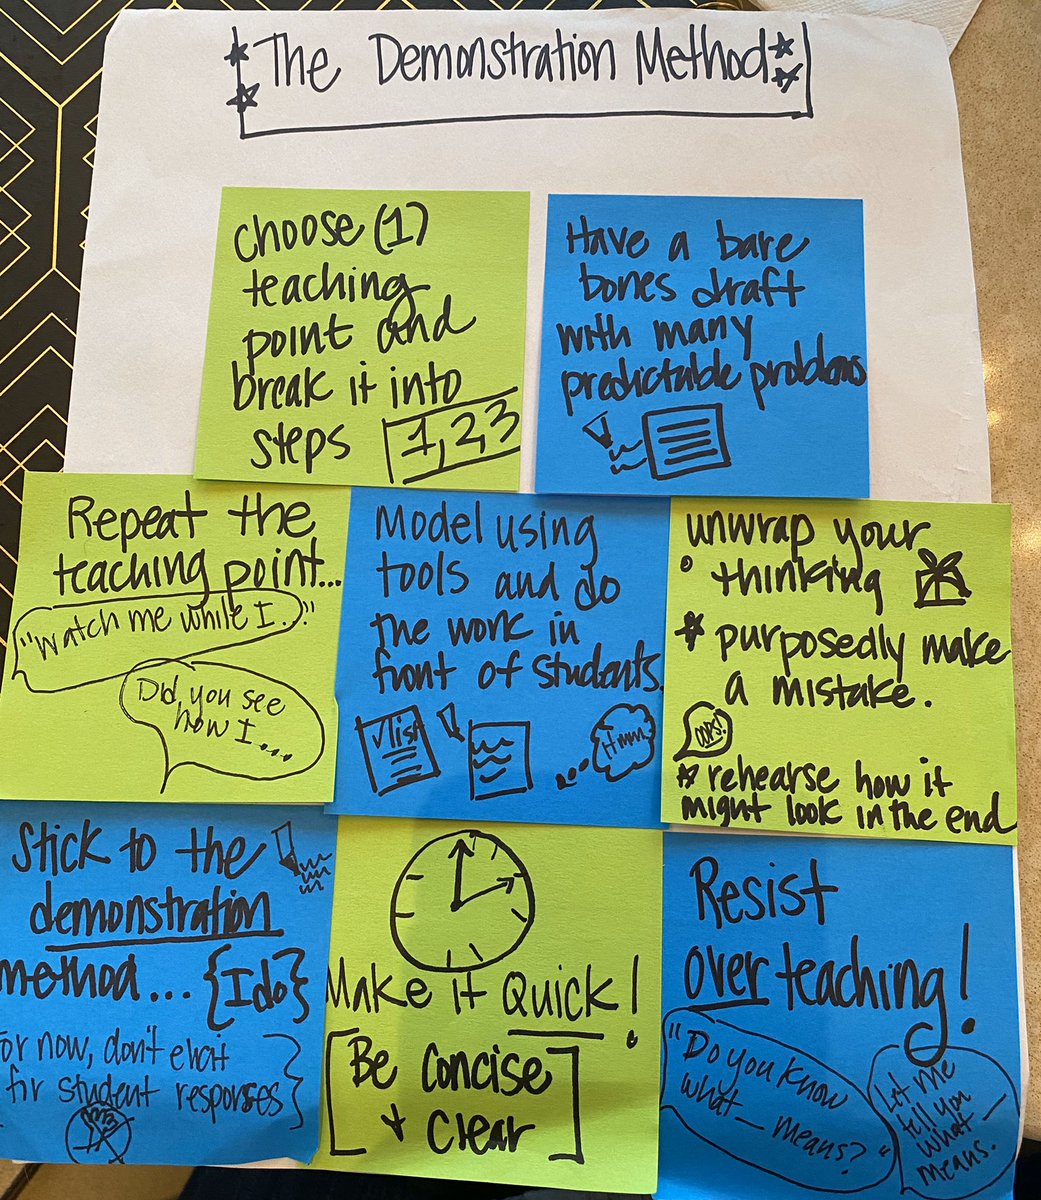 The Demonstration Method
choose (1)
teaching
point and
break it into
steps 1,2,3
Have a bare
bones draft
with many
predictable problems
Repeat the
teaching point...
"Watch me while I..."
Did you see
how I....
Model using
tools and do
the work in
front of students.
list
Hmm
unwrap your
thinking
purposedly make
a mistake.
OOPS!
rehearse how it
might look in the end
Stick to the
demonstration
method... {I do}
for now, don't
for student responses}
Make it Quick!
[Be Concise
+ Clear]
Resist
over teaching!
"Do you know
what — means?"
Let me
tell you
what —
means.